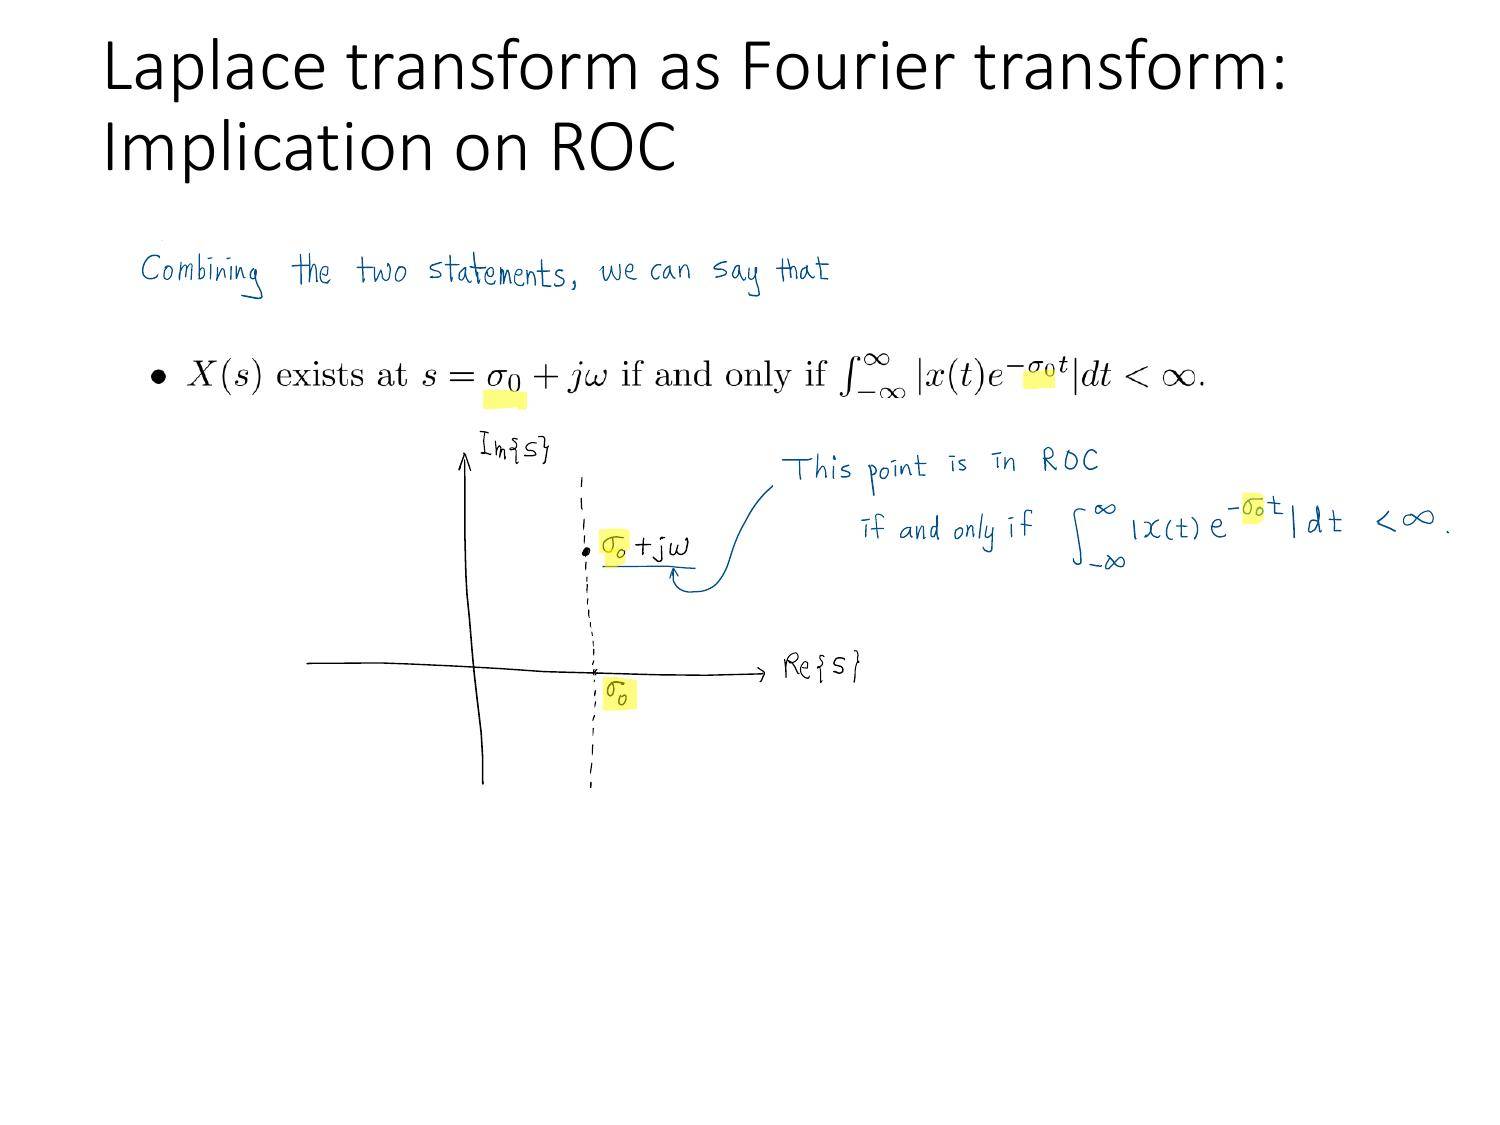 Laplace transform as Fourier transform:
Implication on ROC
Combining the two statements, we can say that
• X(s) exists at s = σ₀ + jω if and only if ∫_{-∞}^{∞} |x(t)e^{-σ₀t}|dt < ∞.
Im{s}
This point is in ROC
if and only if ∫_{-∞}^{∞} |x(t) e^{-σ₀t}| dt < ∞.
σ₀ + jω
Re{s}
σ₀